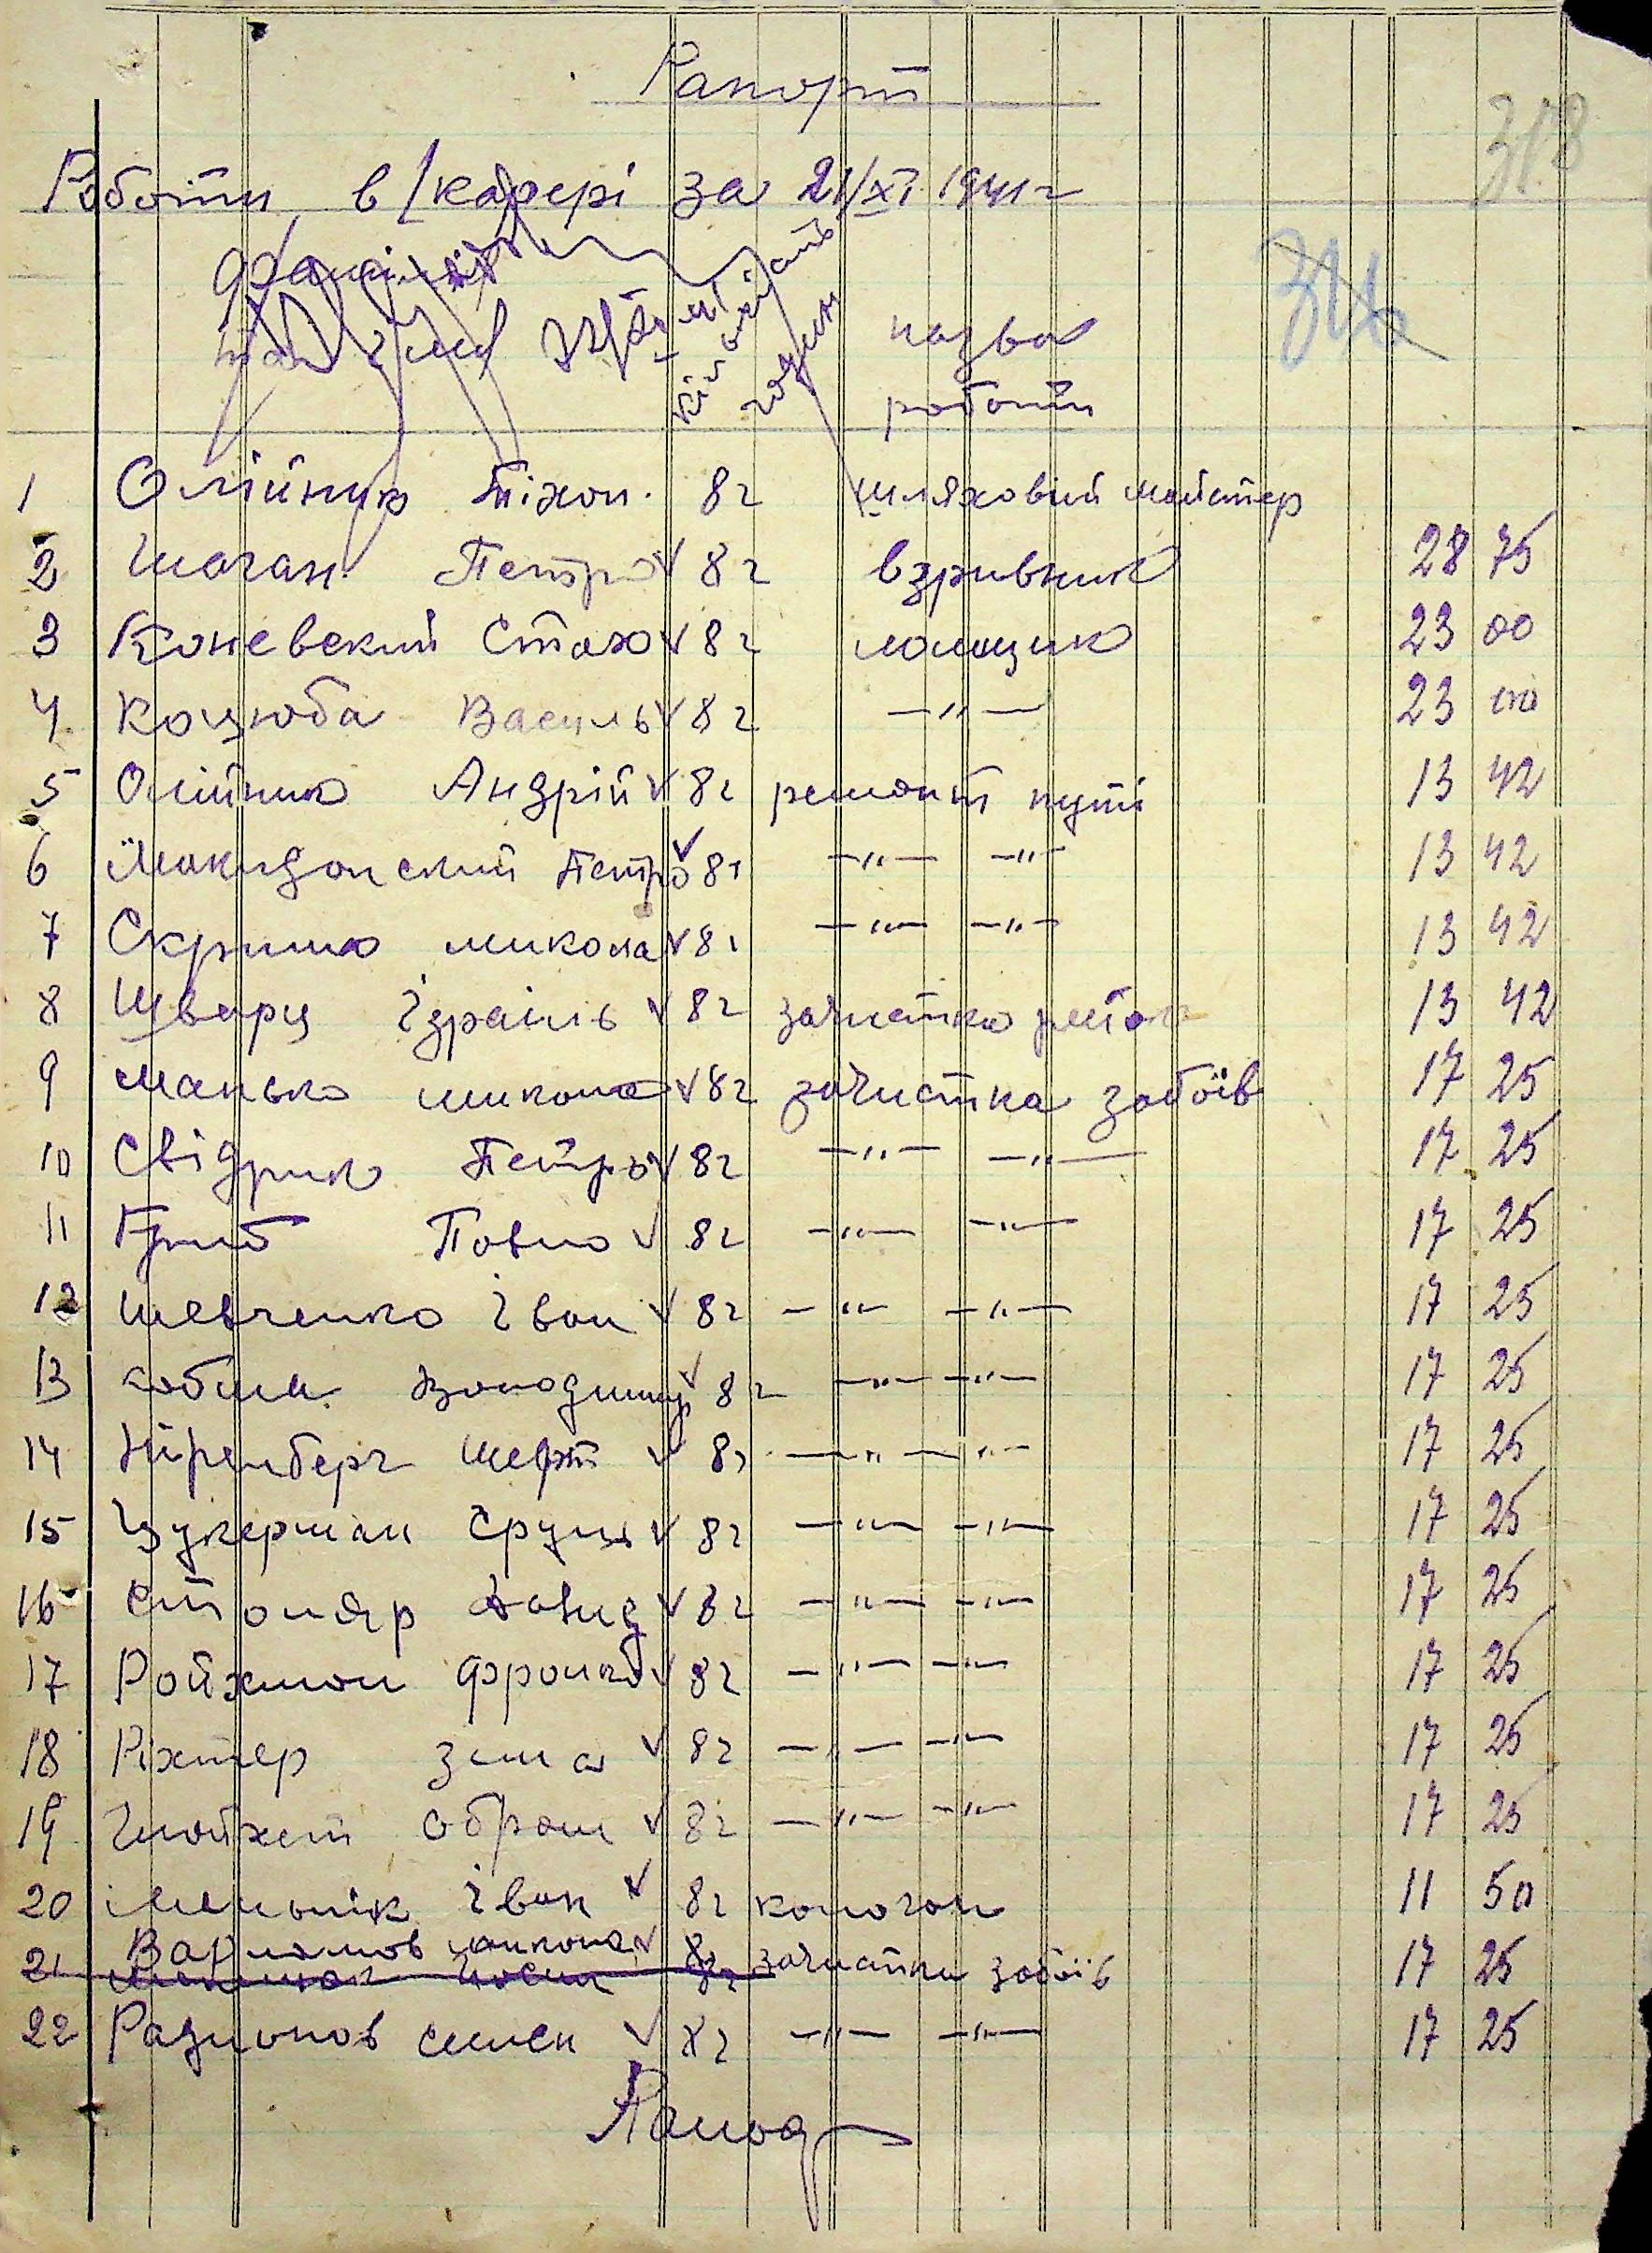 Рапорт
318
Роботи в карєрі за 21/XI 1941 г
314
Фамілія
та імя
кількість
годин
назва
роботи
1 Олійник Тіхон. 8г шляховий майстер
2 Шаган Петро 8г взривник 28 75
3 Каневский Стах 8г ломщик 23 00
4 Коцюба Василь 8г —"— 23 00
5 Олійник Андрій 8г ремонт путі 13 42
6 Македонский Петро 8г —"— —"— 13 42
7 Скрипка микола 8г —"— —"— 13 42
8 Шварц Ізраіль 8г зачистка 13 42
9 Манько микола 8г зачистка забоїв 17 25
10 Свідрик Петро 8г —"— —"— 17 25
11 Гриб Павло 8г —"— —"— 17 25
12 Шевченко Іван 8г —"— —"— 17 25
13 Володимир 8г —"— —"— 17 25
14 Ніренберг 8г —"— —"— 17 25
15 Цукерман Сруль 8г —"— —"— 17 25
16 Столяр Давид 8г —"— —"— 17 25
17 Ройзман Франко 8г —"— —"— 17 25
18 Ріхтер 8г —"— —"— 17 25
19 Абрам 8г —"— —"— 17 25
20 Мельнік Іван 8г коногон 11 50
21 Варламов микола 8г зачистка забоїв 17 25
22 Радионов семен 8г —"— —"— 17 25